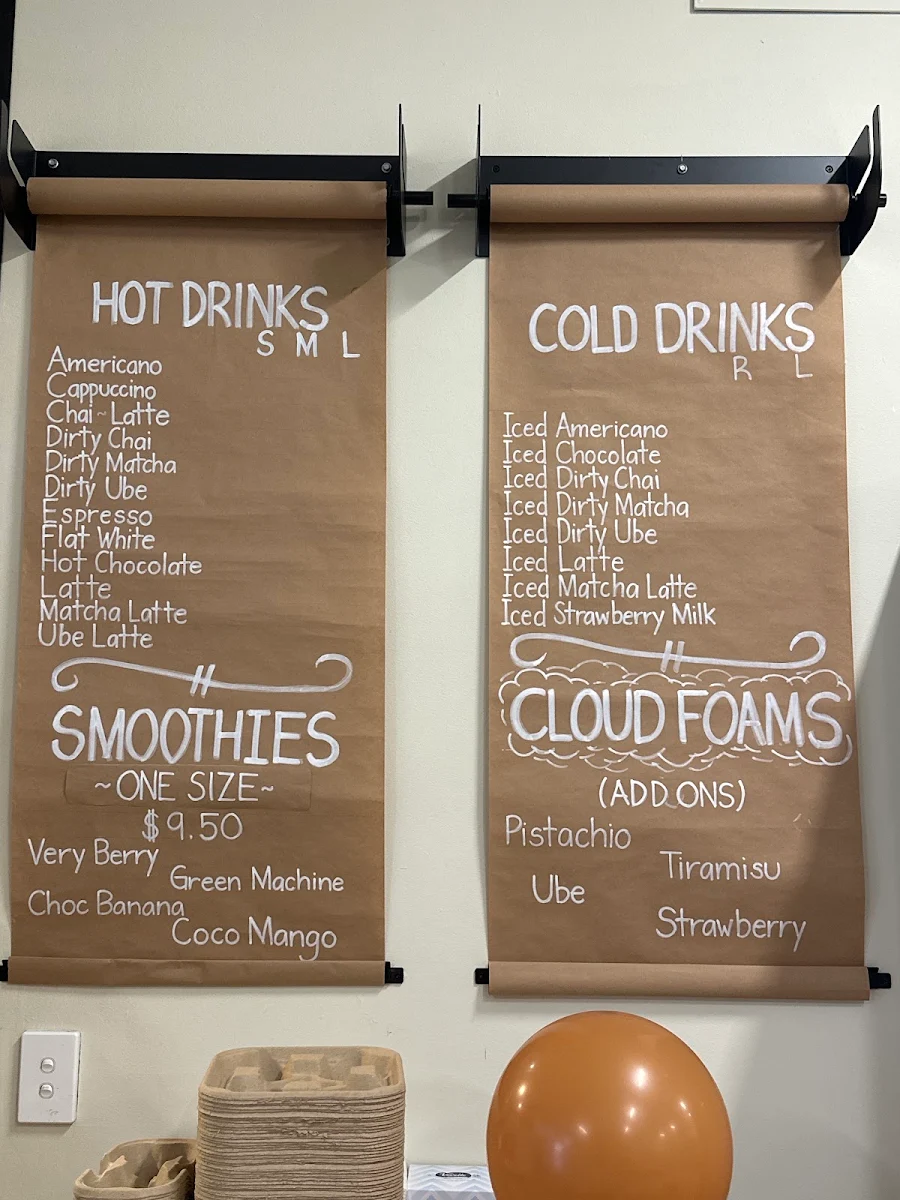 HOT DRINKS
S M L
Americano
Cappuccino
Chai~Latte
Dirty Chai
Dirty Matcha
Dirty Ube
Espresso
Flat White
Hot Chocolate
Latte
Matcha Latte
Ube Latte
SMOOTHIES
~ONE SIZE~
$9.50
Very Berry
Green Machine
Choc Banana
Coco Mango
COLD DRINKS
R L
Iced Americano
Iced Chocolate
Iced Dirty Chai
Iced Dirty Matcha
Iced Dirty Ube
Iced Latte
Iced Matcha Latte
Iced Strawberry Milk
CLOUD FOAMS
(ADD ONS)
Pistachio
Tiramisu
Ube
Strawberry